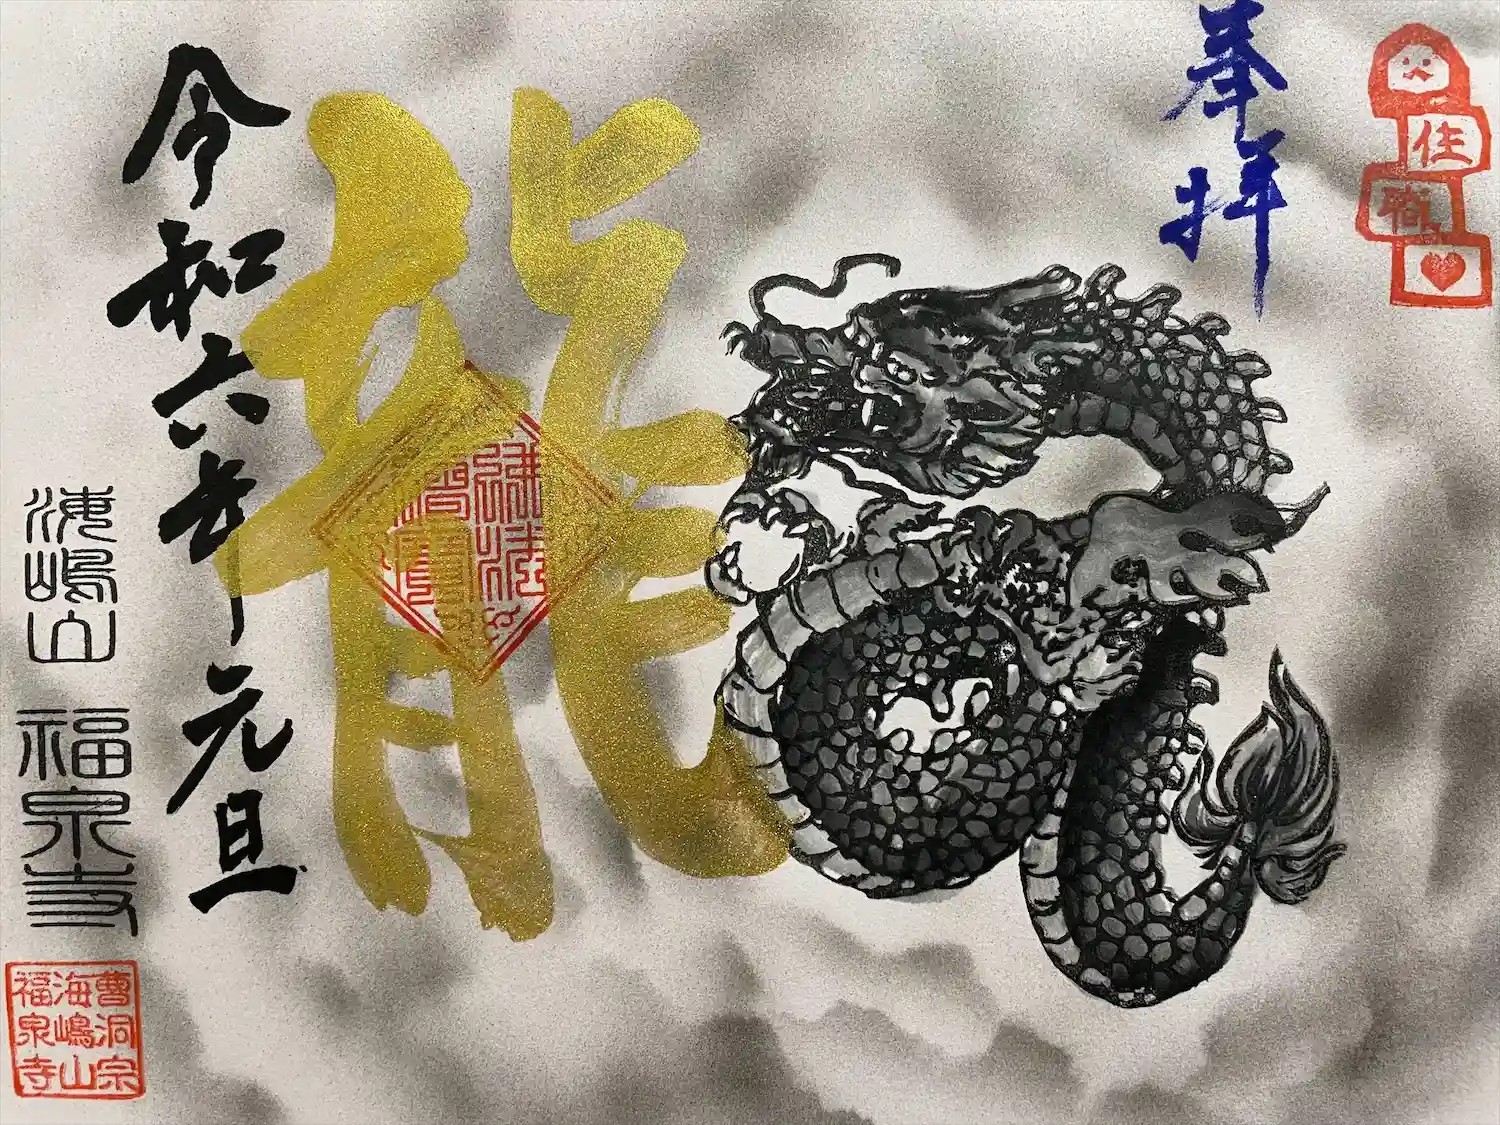 奉拝
住
職
龍
令和六年元旦
海嶋山 福泉寺
曹洞宗
海嶋山
福泉寺